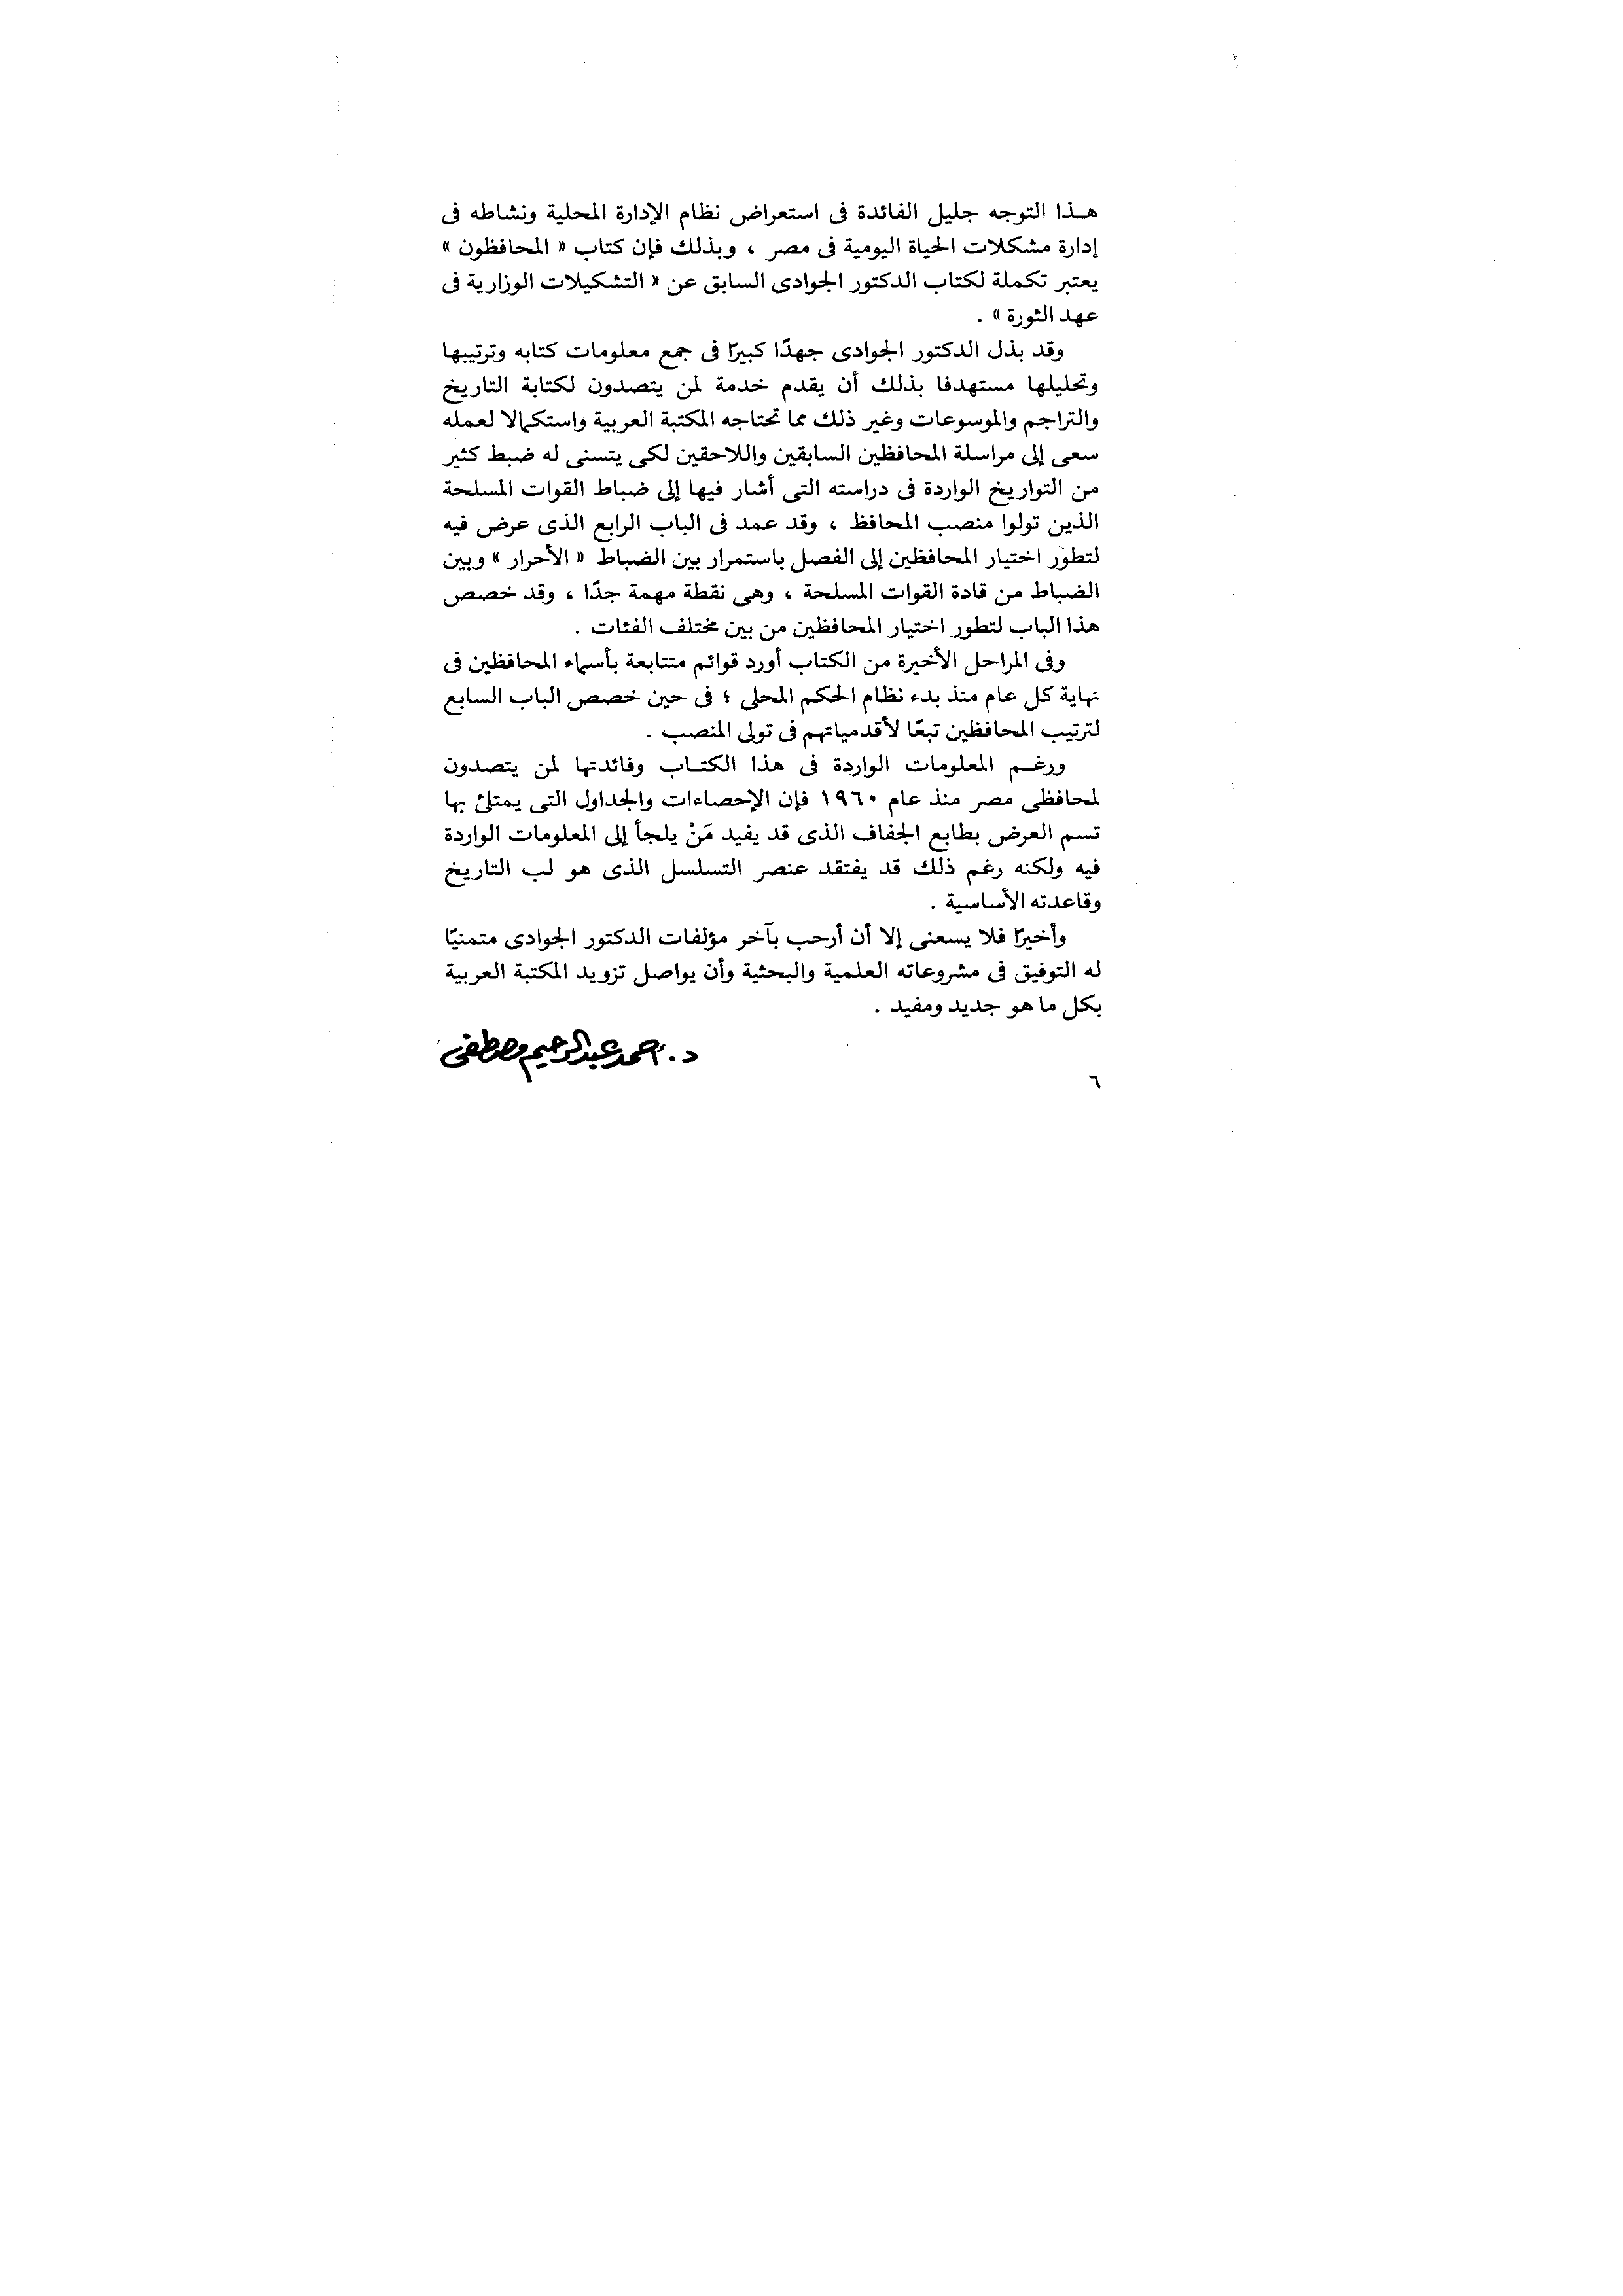 هـذا التوجه جليل الفائدة فى استعراض نظام الإدارة المحلية ونشاطه فى
إدارة مشكلات الحياة اليومية فى مصر ، وبذلك فإن كتاب « المحافظون »
يعتبر تكملة لكتاب الدكتور الجوادى السابق عن « التشكيلات الوزارية فى
عهد الثورة » .
وقد بذل الدكتور الجوادى جهدًا كبيرًا فى جمع معلومات كتابه وترتيبها
وتحليلها مستهدفا بذلك أن يقدم خدمة لمن يتصدون لكتابة التاريخ
والتراجم والموسوعات وغير ذلك مما تحتاجه المكتبة العربية واستكمالا لعمله
سعى إلى مراسلة المحافظين السابقين واللاحقين لكى يتسنى له ضبط كثير
من التواريخ الواردة فى دراسته التى أشار فيها إلى ضباط القوات المسلحة
الذين تولوا منصب المحافظ ، وقد عمد فى الباب الرابع الذى عرض فيه
لتطور اختيار المحافظين إلى الفصل باستمرار بين الضباط « الأحرار » وبين
الضباط من قادة القوات المسلحة ، وهى نقطة مهمة جدًا ، وقد خصص
هذا الباب لتطور اختيار المحافظين من بين مختلف الفئات .
وفى المراحل الأخيرة من الكتاب أورد قوائم متتابعة بأسماء المحافظين فى
نهاية كل عام منذ بدء نظام الحكم المحلى ؛ فى حين خصص الباب السابع
لترتيب المحافظين تبعًا لأقدمياتهم فى تولى المنصب .
ورغـم المعلومات الواردة فى هذا الكتـاب وفائدتها لمن يتصدون
لمحافظى مصر منذ عام ١٩٦٠ فإن الإحصاءات والجداول التى يمتلئ بها
تسم العرض بطابع الجفاف الذى قد يفيد مَنْ يلجأ إلى المعلومات الواردة
فيه ولكنه رغم ذلك قد يفتقد عنصر التسلسل الذى هو لب التاريخ
وقاعدته الأساسية .
وأخيرًا فلا يسعنى إلا أن أرحب بآخر مؤلفات الدكتور الجوادى متمنيًا
له التوفيق فى مشروعاته العلمية والبحثية وأن يواصل تزويد المكتبة العربية
بكل ما هو جديد ومفيد .
د. أحمد عبد الرحيم مصطفى
٦